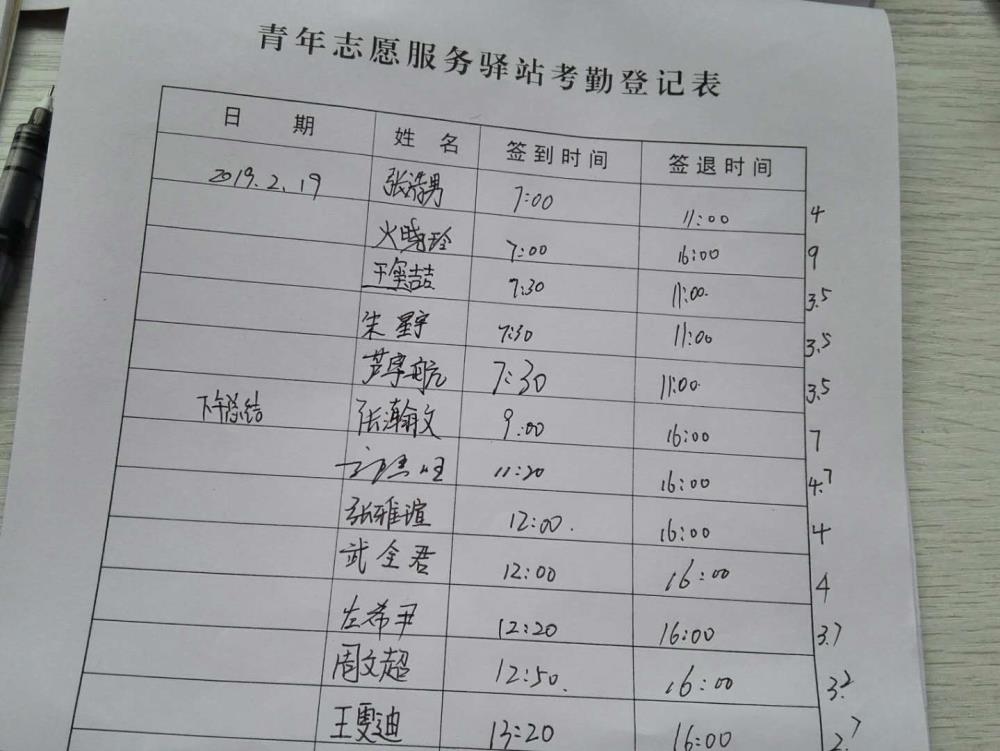 青年志愿服务驿站考勤登记表
日 期 姓 名 签到时间 签退时间
2019.2.19 张浩男 7:00 11:00 4
火晓玲 7:00 16:00 9
王玺喆 7:30 11:00 3.5
朱星宇 7:30 11:00 3.5
芦宇航 7:30 11:00 3.5
下午总结 张瀚文 9:00 16:00 7
11:20 16:00 4.7
张雅瑄 12:00 16:00 4
武全君 12:00 16:00 4
左希尹 12:20 16:00 3.7
周文超 12:50 16:00 3.2
王雯迪 13:20 16:00 2.7